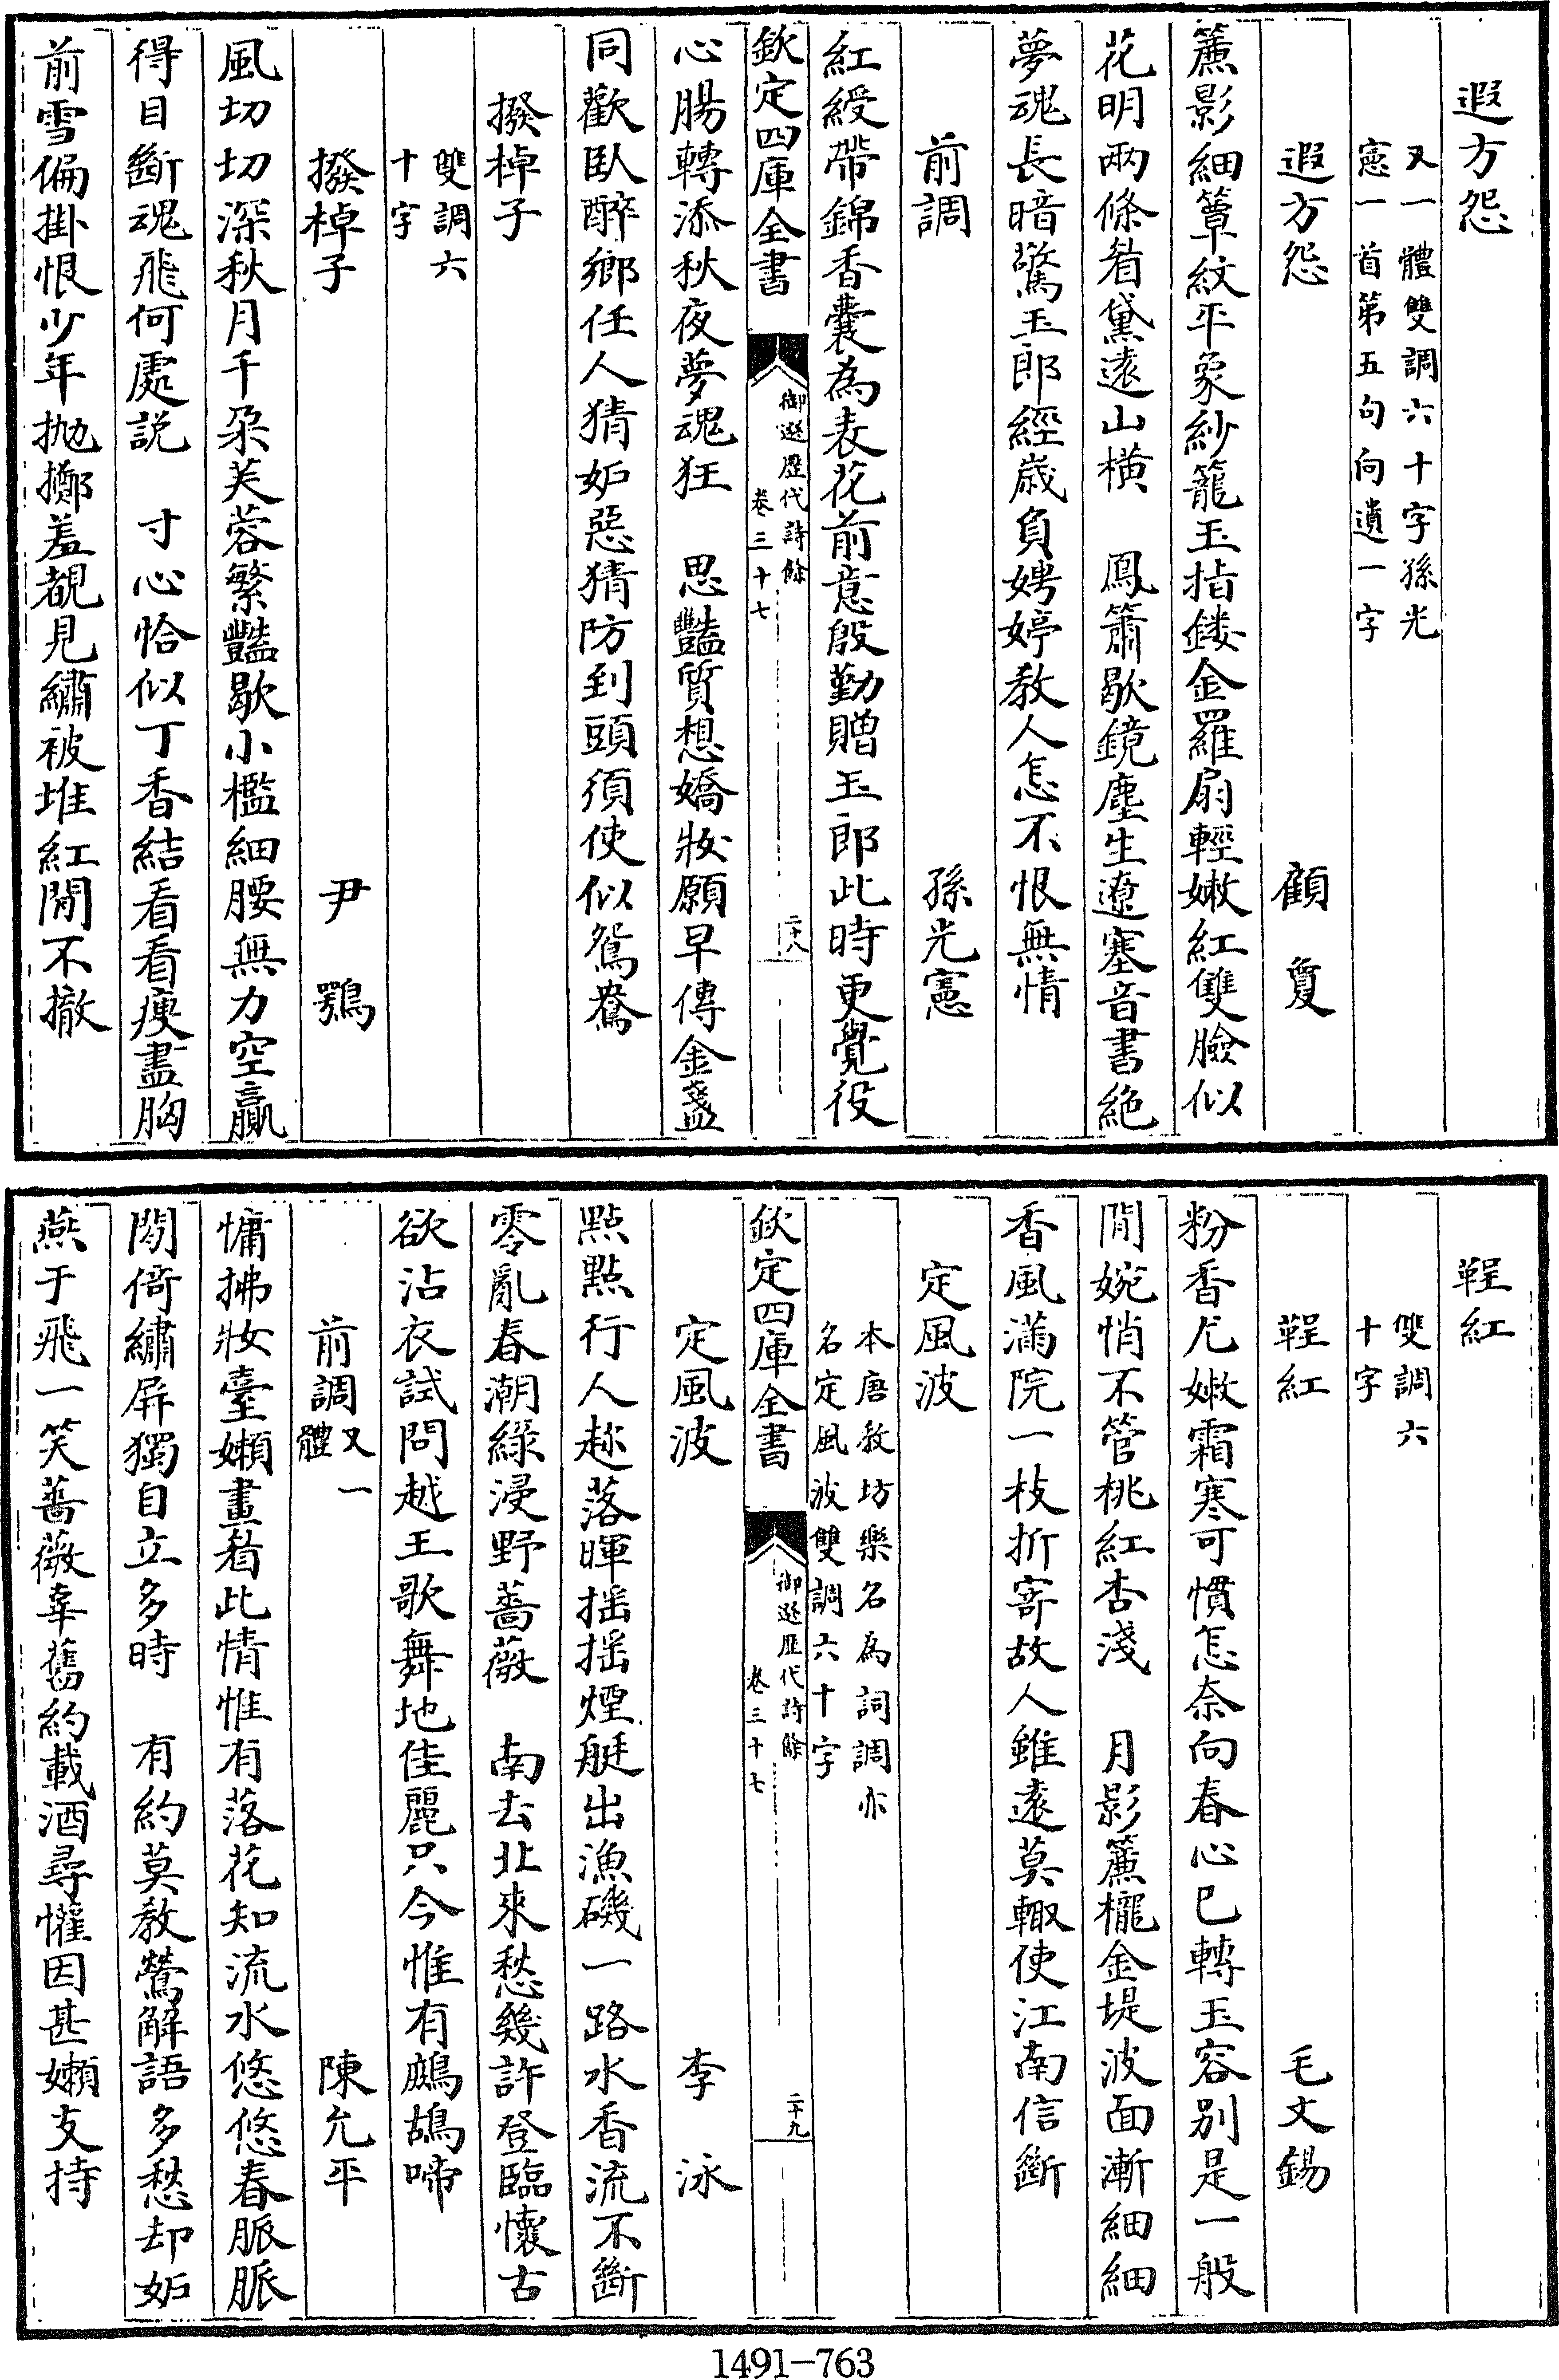 遐方怨
又一體雙調六十字孫光
憲一首第五句向遺一字
遐方怨　顧敻
簾影細簟紋平象紗籠玉指鏤金羅扇輕嫩紅雙臉似
花明兩條眉黛遠山橫　鳳簫歇鏡塵生遼塞音書絶
夢魂長暗驚玉郎經歲負娉婷教人怎不恨無情
前調　孫光憲
紅綬帶錦香囊為表花前意殷勤贈玉郎此時更覺役
欽定四庫全書　御選歷代詩餘　卷三十七　二十八
心腸轉添秋夜夢魂狂　思豔質想嬌妝願早傳金盞
同歡臥醉鄉任人猜妒惡猜防到頭須使似鴛鴦
撥棹子
雙調六
十字
撥棹子　尹鶚
風切切深秋月千朶芙蓉繁豔歇小檻細腰無力空贏
得目斷魂飛何處説　寸心恰似丁香結看看痩盡胸
前雪偏掛恨少年抛擲羞覩見繡被堆紅閒不撤
鞓紅
雙調六
十字
鞓紅　毛文錫
粉香尤嫩霜寒可慣怎奈向春心已轉玉容别是一般
閒婉悄不管桃紅杏淺　月影簾櫳金堤波面漸細細
香風滿院一枝折寄故人雖遠莫輙使江南信斷
定風波
本唐教坊樂名為詞調亦
名定風波雙調六十字
欽定四庫全書　御選歷代詩餘　卷三十七　二十九
定風波　李泳
點點行人趂落暉揺揺煙艇出漁磯一路水香流不斷
零亂春潮緑浸野薔薇　南去北來愁幾許登臨懷古
欲沾衣試問越王歌舞地佳麗只今惟有鷓鴣啼
前調又一體　陳允平
慵拂妝臺嬾畫眉此情惟有落花知流水悠悠春脈脈
閒倚繡屏獨自立多時　有約莫教鶯解語多愁却妒
燕于飛一笑薔薇辜舊約載酒尋懽因甚嬾支持
1491-763